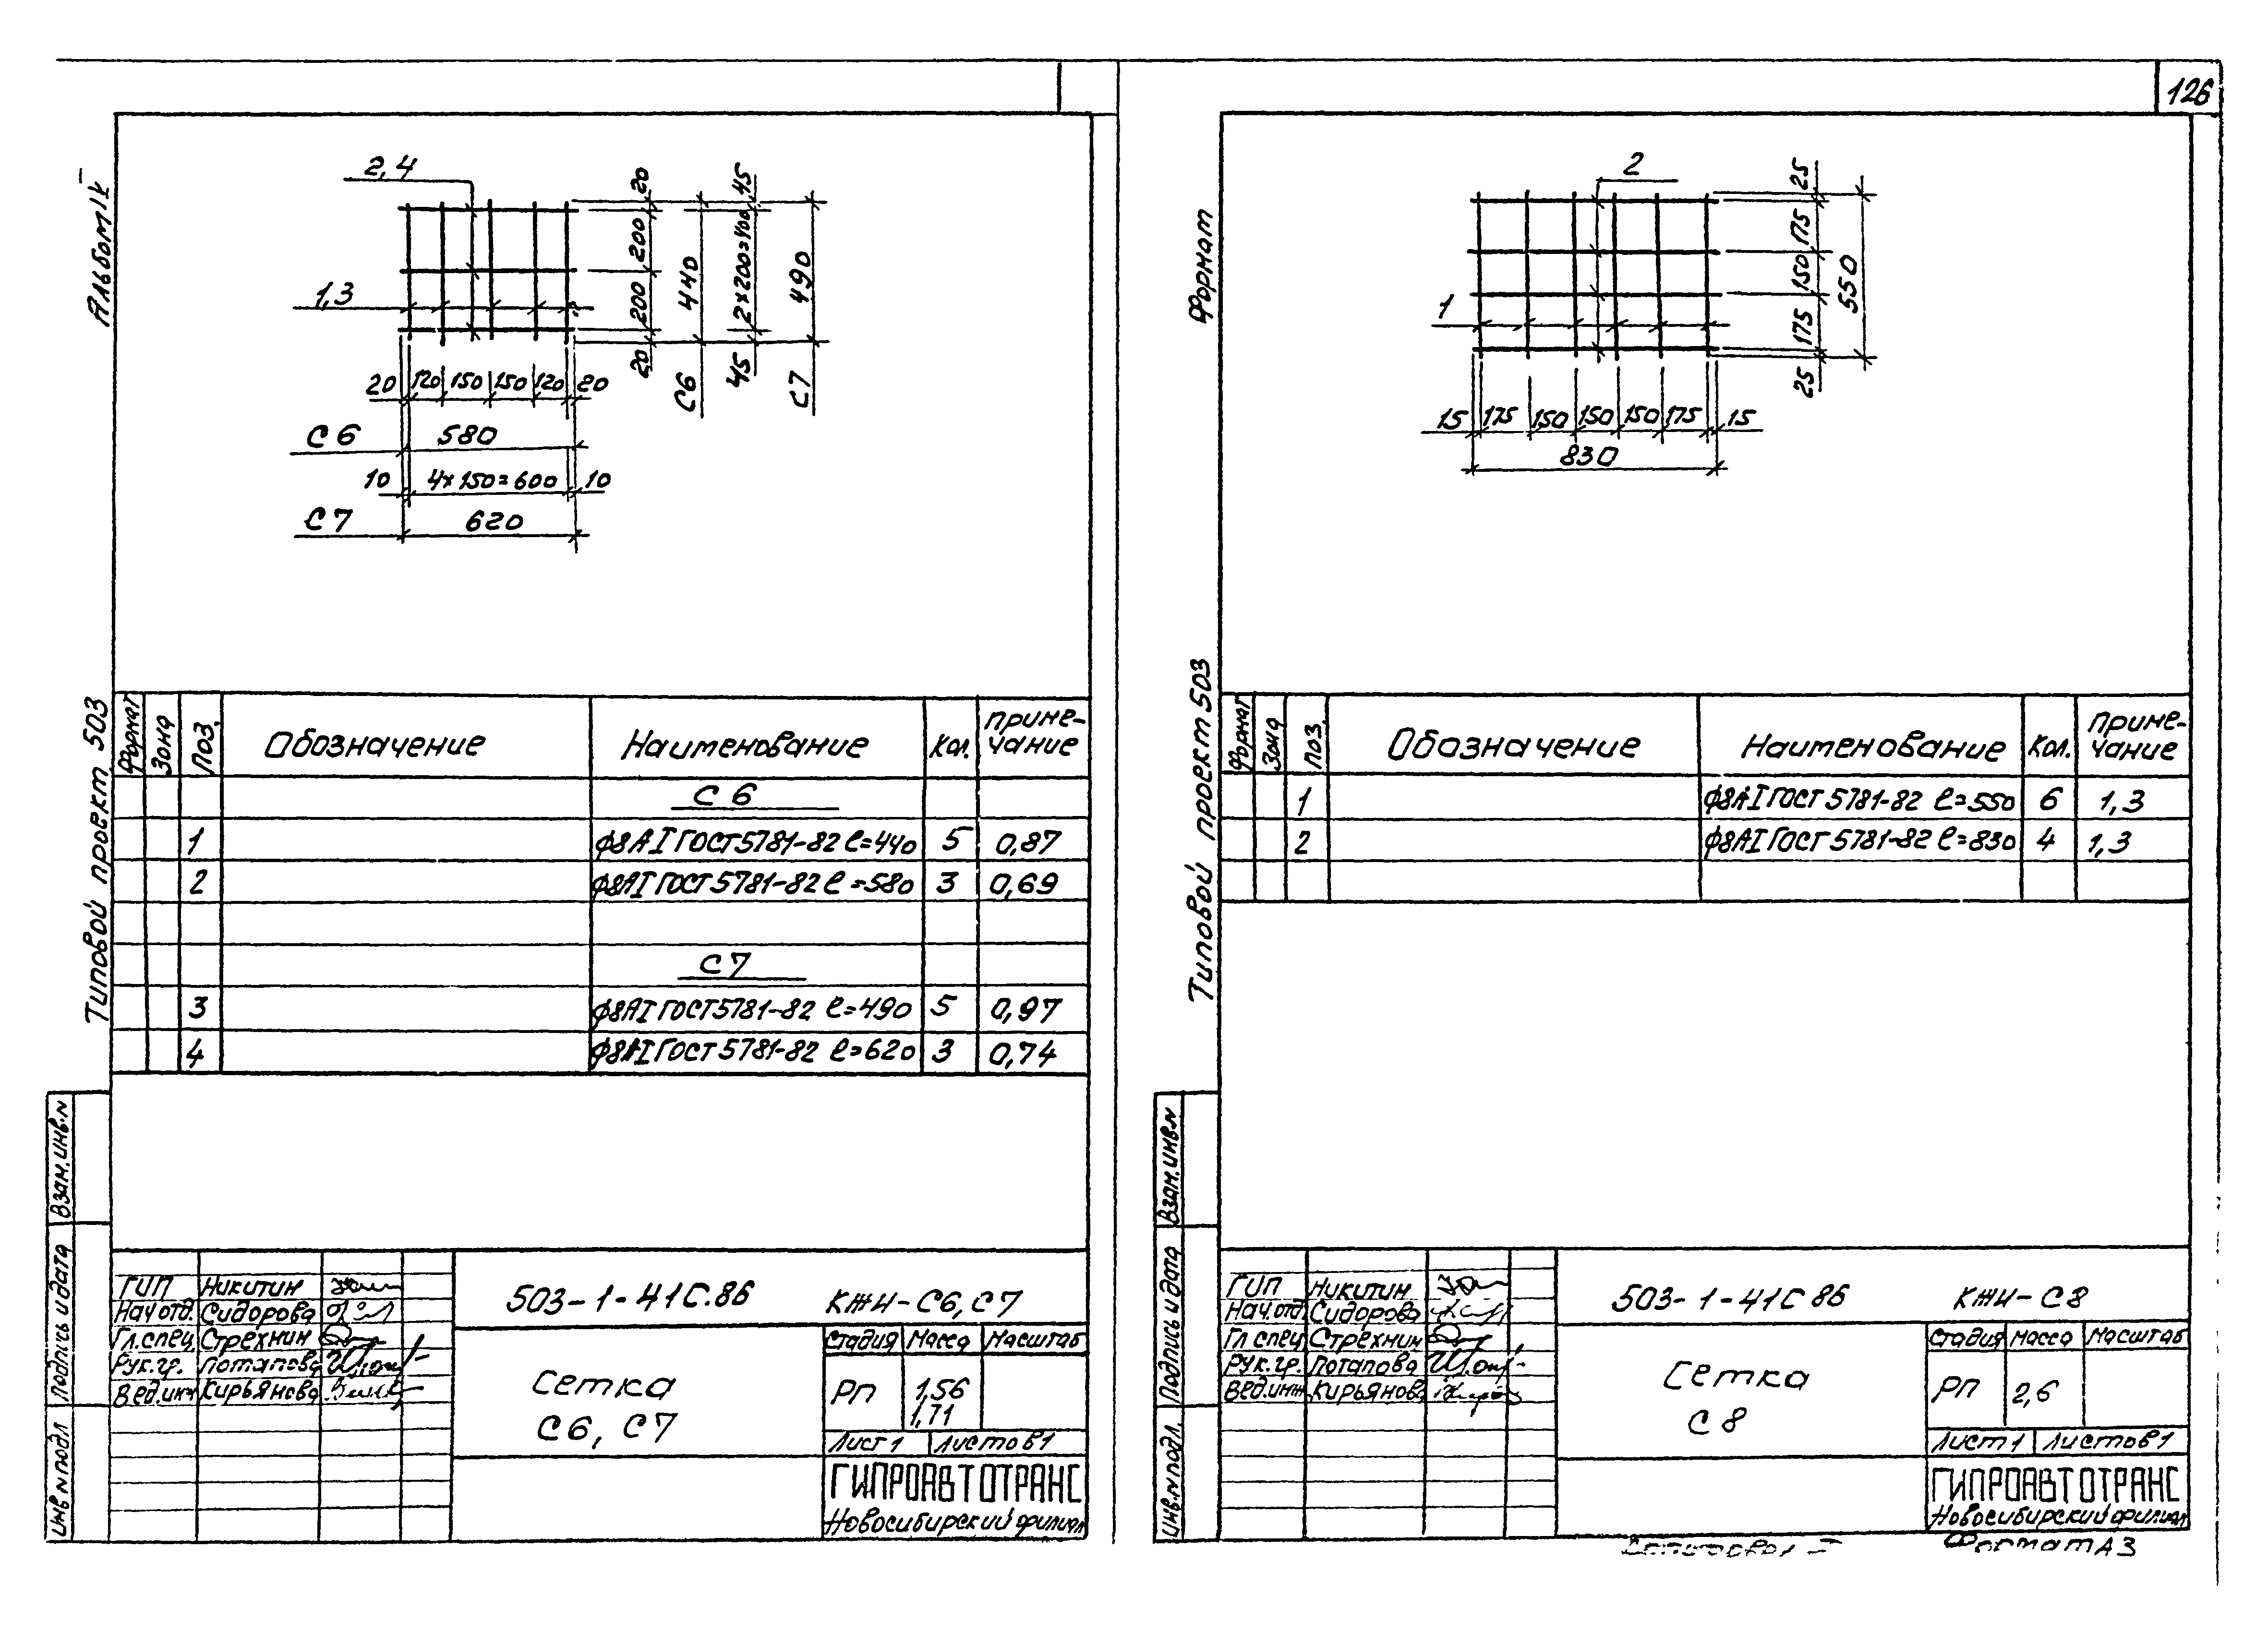 126
Альбом IV
Типовой проект 503
2,4
1,3
20
200
200
20
440
С6
45
2×200=400
45
490
С7
20 120 150 150 120 20
С6 580
10 4×150=600 10
С7 620
Формат Зона Поз. Обозначение Наименование Кол. Приме-
чание
С6
1 ф8АI ГОСТ 5781-82 ℓ=440 5 0,87
2 ф8АI ГОСТ 5781-82 ℓ=580 3 0,69
С7
3 ф8АI ГОСТ 5781-82 ℓ=490 5 0,97
4 ф8АI ГОСТ 5781-82 ℓ=620 3 0,74
Взам.инв.N
Подпись и дата
Инв N подл
ГИП Никитин
Нач отд. Сидорова
Гл.спец Стрехнин
Рук.гр. Потапова
Вед.инж Кирьянова
503-1-41С.86 КЖИ-С6,С7
Сетка
С6, С7
Стадия Масса Масштаб
РП 1,56
1,71
Лист 1 Листов 1
ГИПРОАВТОТРАНС
Новосибирский филиал
Формат
Типовой проект 503
2
1
25
175
150
175
25
550
15 175 150 150 150 175 15
830
Формат Зона Поз. Обозначение Наименование Кол. Приме-
чание
1 ф8АI ГОСТ 5781-82 ℓ=550 6 1,3
2 ф8АI ГОСТ 5781-82 ℓ=830 4 1,3
Взам.инв.N
Подпись и дата
Инв.N подл.
ГИП Никитин
Нач.отд. Сидорова
Гл спец Стрехнин
Рук.гр. Потапова
Вед.инж. Кирьянова
503-1-41С 86 КЖИ-С8
Сетка
С8
Стадия Масса Масштаб
РП 2,6
Лист 1 Листов 1
ГИПРОАВТОТРАНС
Новосибирский филиал
Формат А3